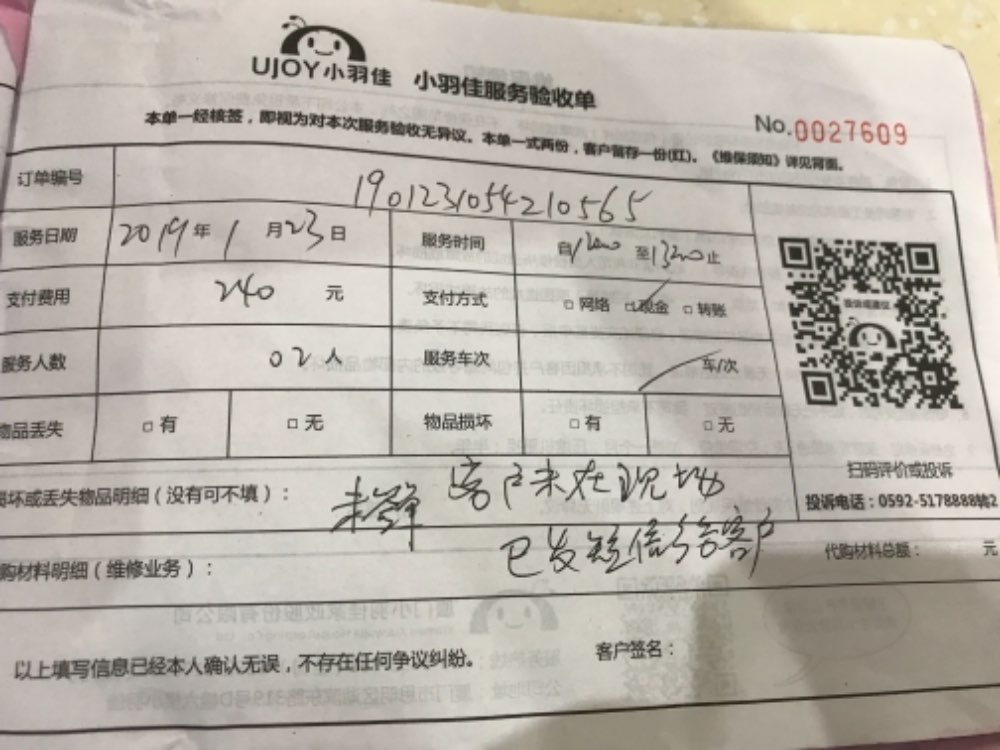 UJOY小羽佳 小羽佳服务验收单
No.0027609
本单一经核签，即视为对本次服务验收无异议。本单一式两份，客户留存一份(红)。《维保须知》详见背面。
订单编号 190123105421056​5
服务日期 2019年1月23日 服务时间 自1200至1300止
支付费用 240 元 支付方式 □网络 □现金 □转账
服务人数 02人 服务车次 车/次
物品丢失 □有 □无 物品损坏 □有 □无
扫码评价或投诉
投诉电话：0592-5178888转2
损坏或丢失物品明细（没有可不填）： 客户未在现场
已发短信给客户
代购材料总额： 元
购材料明细（维修业务）：
以上填写信息已经本人确认无误，不存在任何争议纠纷。 客户签名：